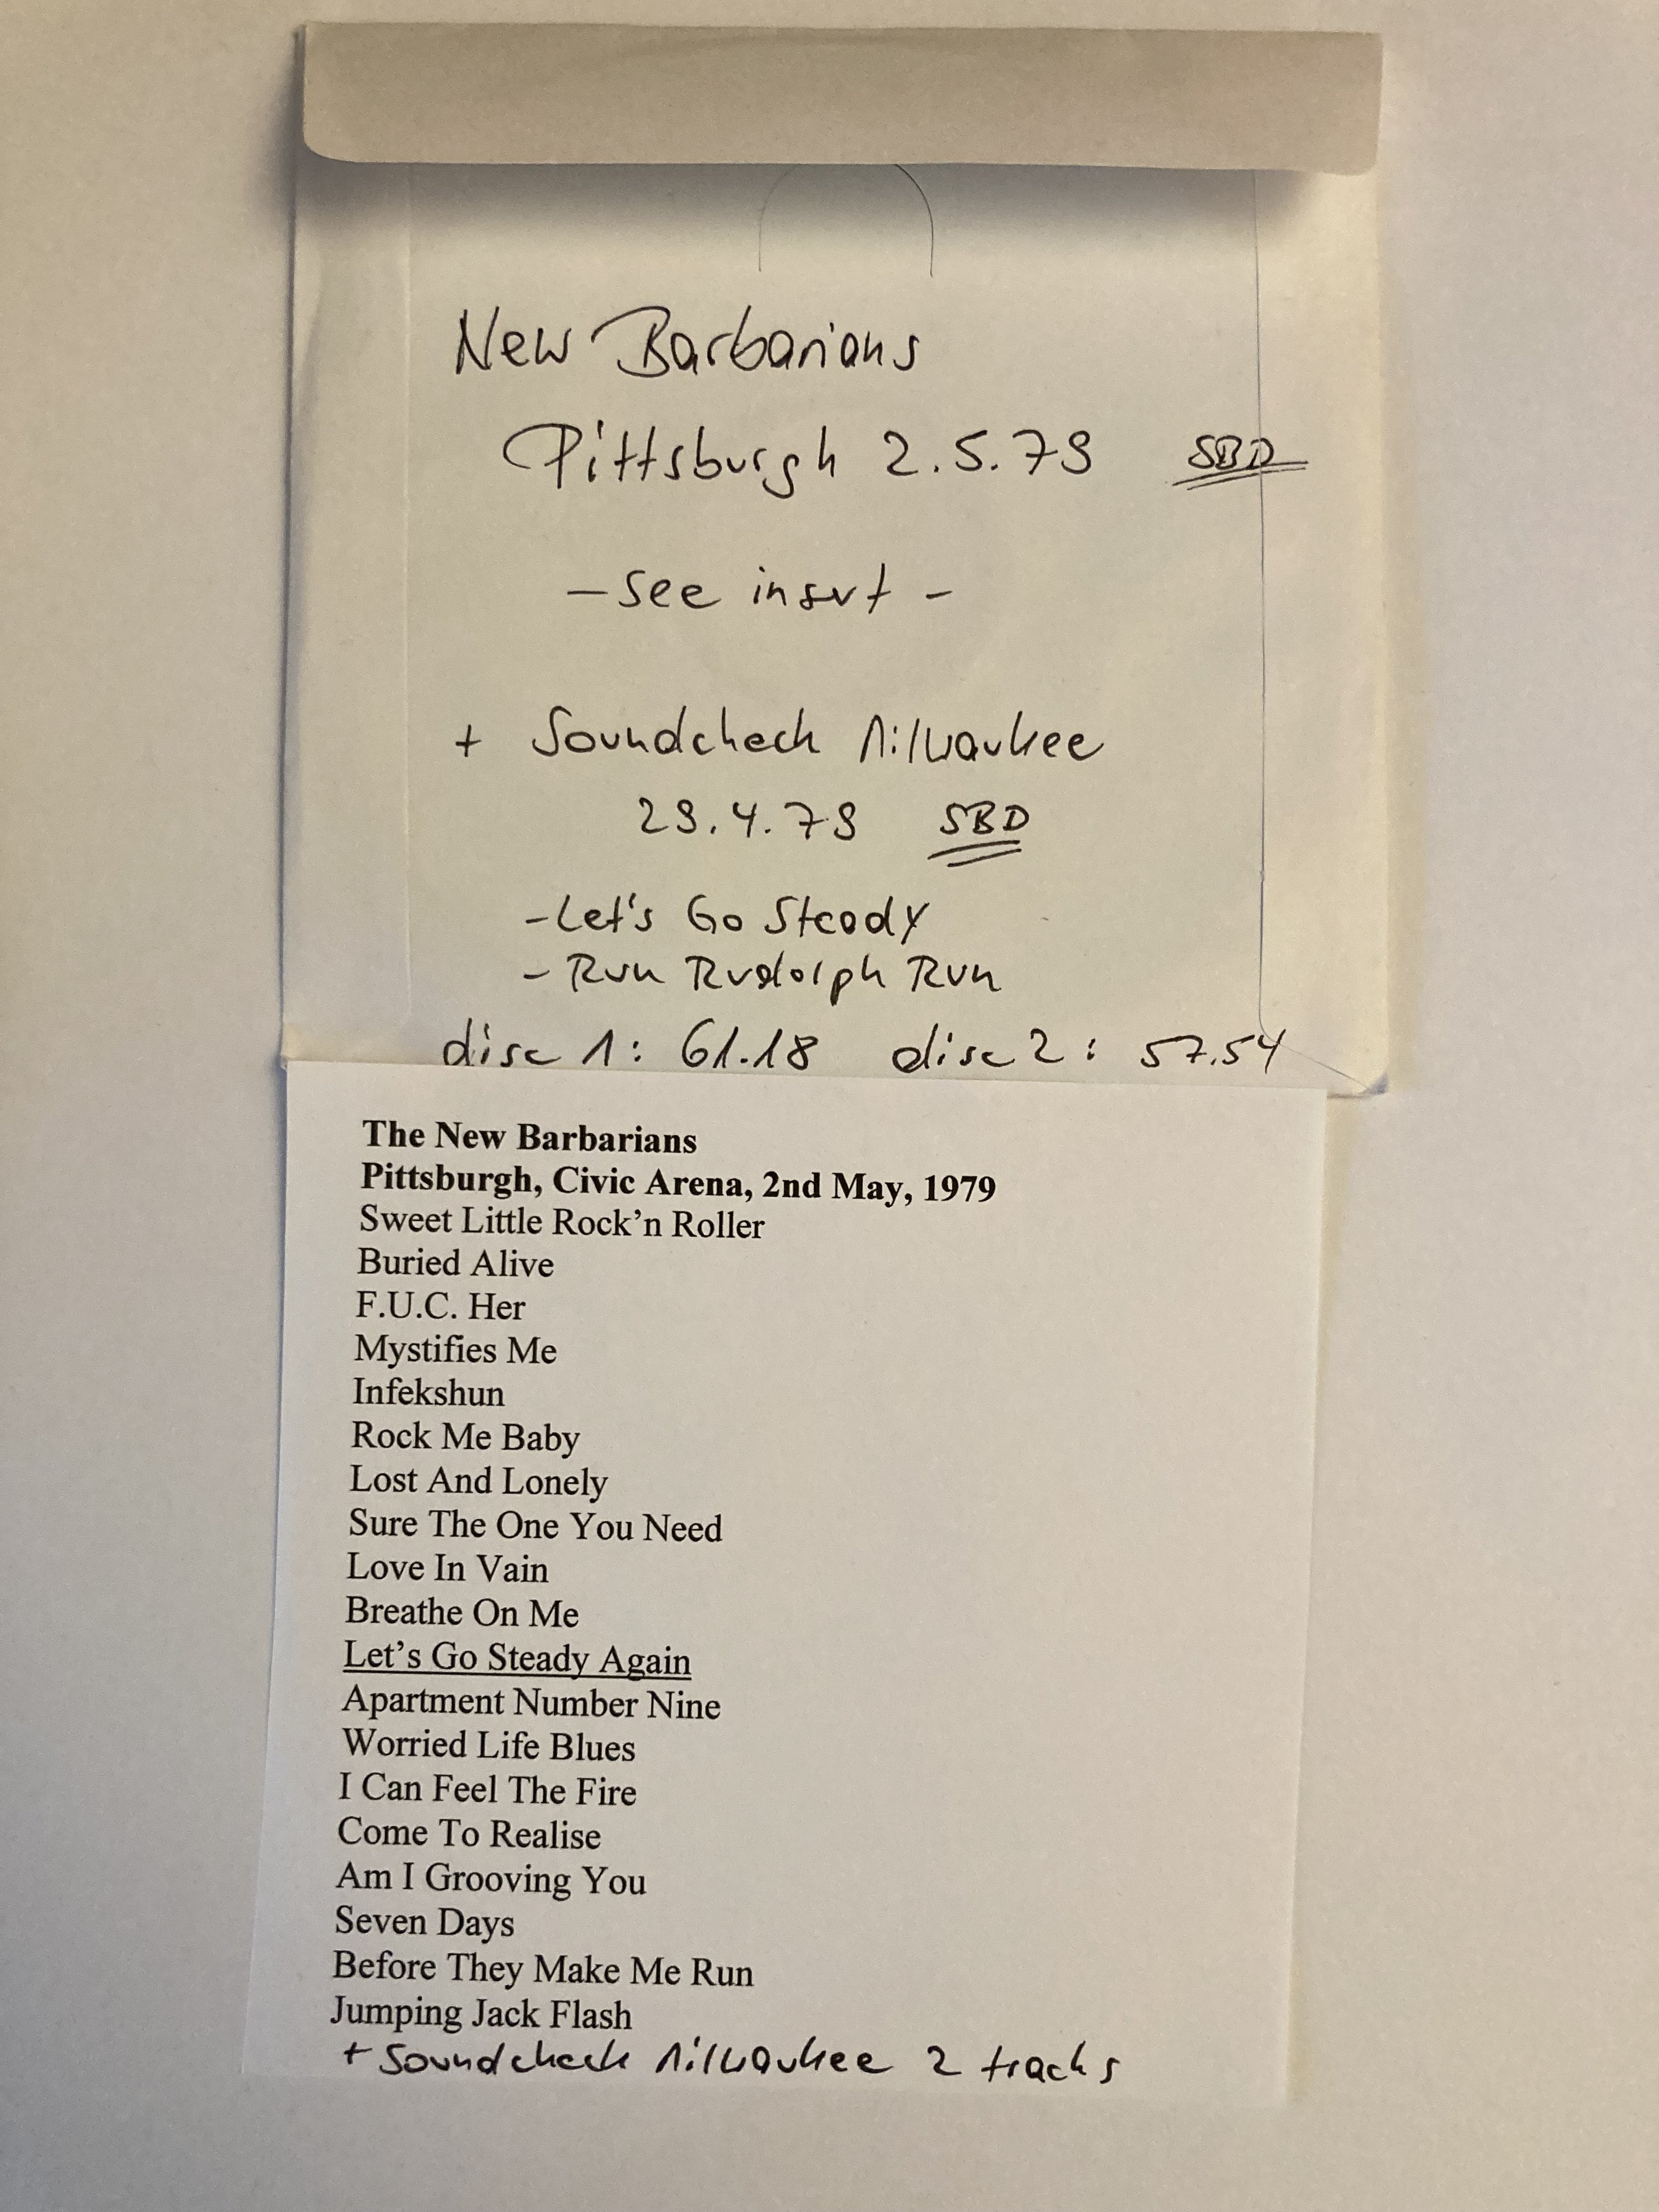 New Barbarians
Pittsburgh 2.5.79 SBD
- See insert -
+ Soundcheck Milwaukee
29.4.79 SBD
- Let's Go Steady
- Run Rudolph Run
disc 1: 61.18 disc 2: 57.54
The New Barbarians
Pittsburgh, Civic Arena, 2nd May, 1979
Sweet Little Rock’n Roller
Buried Alive
F.U.C. Her
Mystifies Me
Infekshun
Rock Me Baby
Lost And Lonely
Sure The One You Need
Love In Vain
Breathe On Me
Let’s Go Steady Again
Apartment Number Nine
Worried Life Blues
I Can Feel The Fire
Come To Realise
Am I Grooving You
Seven Days
Before They Make Me Run
Jumping Jack Flash
+ Soundcheck Milwaukee 2 tracks